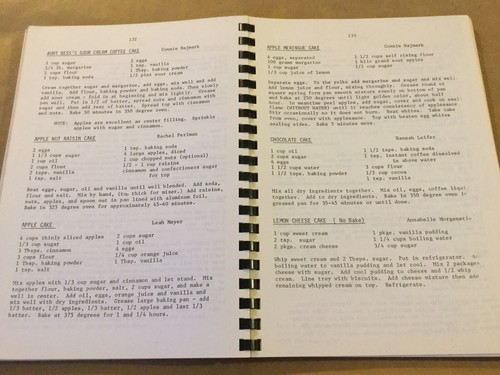 132
AUNT BESS'S SOUR CREAM COFFEE CAKE
Connie Najmark
1 cup sugar
1/4 lb. margarine
2 cups flour
1 tsp. baking soda
2 eggs
1 tsp. vanilla
1 Tbsp. baking powder
1/2 pint sour cream
Cream together sugar and margarine, add eggs, mix well and add
vanilla. Add flour, baking powder and baking soda. Then slowly
add sour cream - fold in at beginning and mix lightly. Grease
pan well. Put in 1/2 of batter, spread nuts and cinnamon with
sugar and then add rest of batter. Spread top with cinnamon
and nuts. Bake 50 minutes in 350 degree oven.
NOTE: Apples are excellent as center filling. Sprinkle
apples with sugar and cinnamon.
APPLE NUT RAISIN CAKE
Rachel Perlman
2 eggs
1 1/3 cups sugar
1 cup oil
2 cups flour
2 tsps. vanilla
1 tsp. salt
1 tsp. baking soda
4 large apples, diced
1 cup chopped nuts (optional)
1/2 - 1 cup raisins
cinnamon and confectioners sugar
for top
Beat eggs, sugar, oil and vanilla until well blended. Add soda,
flour and salt. Mix by hand, (to thick for mixer.) Add raisins,
nuts, apples, and spoon out in pan lined with aluminum foil.
Bake in 325 degree oven for approximately 45-60 minutes.
APPLE CAKE
Leah Meyer
4 cups thinly sliced apples
1/3 cup sugar
3 Tbsps. cinnamon
3 cups flour
1 Tbsp. baking powder
1 tsp. salt
2 cups sugar
1 cup oil
4 eggs
1/4 cup orange juice
1 Tbsp. vanilla
Mix apples with 1/3 cup sugar and cinnamon and let stand. Mix
together flour, baking powder, salt, 2 cups sugar, and make a
well in center. Add oil, eggs, orange juice and vanilla and
mix well with dry ingredients. Grease large baking pan - add
1/3 batter, 1/2 apples, 1/3 batter, 1/2 apples and last 1/3
batter. Bake at 375 degrees for 1 and 1/4 hours.
133
APPLE MERINGUE CAKE
Connie Najmark
4 eggs, separated
100 grams margarine
1 cup sugar
1/3 cup juice of lemon
1 1/2 cups self rising flour
1 kilo grand sour apples
1/2 cup sugar
Separate eggs. To the yolks add margarine and sugar and mix well.
Add lemon juice and flour, mixing thoroughly. Grease round or
square spring form pan smooth mixture evenly on bottom of pan
and bake at 350 degrees until light golden color, about half
hour. In meantime peel apples, add sugar, cover and cook on small
flame (WITHOUT WATER) until it reaches consistency of applesauce.
Stir occasionally so it does not burn. Beat whites. Take cake
from oven, cover with applesauce. Top with beaten egg whites
sealing sides. Bake 5 minutes more.
CHOCOLATE CAKE
Hannah Leifer
1 cup oil
2 cups sugar
4 eggs
1 1/2 cups water
3 cups flour
1 1/2 tsps. baking soda
1 tsp. Instant coffee dissolved
in above water
1 Tbsp. baking powder
1/3 cup cocoa
1 tsp. vanilla
Mix all dry ingredients together. Mix oil, eggs, coffee
together. Add to dry ingredients. Bake in 350 degree oven in
greased pan for 35-45 minutes or until done.
LEMON CHEESE CAKE ( No Bake)
Annabelle
1 cup sweet cream
2 tsp. sugar
2 pkgs. cream cheese
1 pkg. vanilla pudding
1 1/4 cups boiling water
3/4 cup sugar
Whip sweet cream and 2 Tbsps. sugar. Put in refrigerator.
boiling water to vanilla pudding and let cool. Mix 2 packages
cheese with sugar. Add cool pudding to cheese and 1/2 whip
cream. Line tray with biscuits. Add cheese mixture then add
remaining whipped cream on top. Refrigerate.